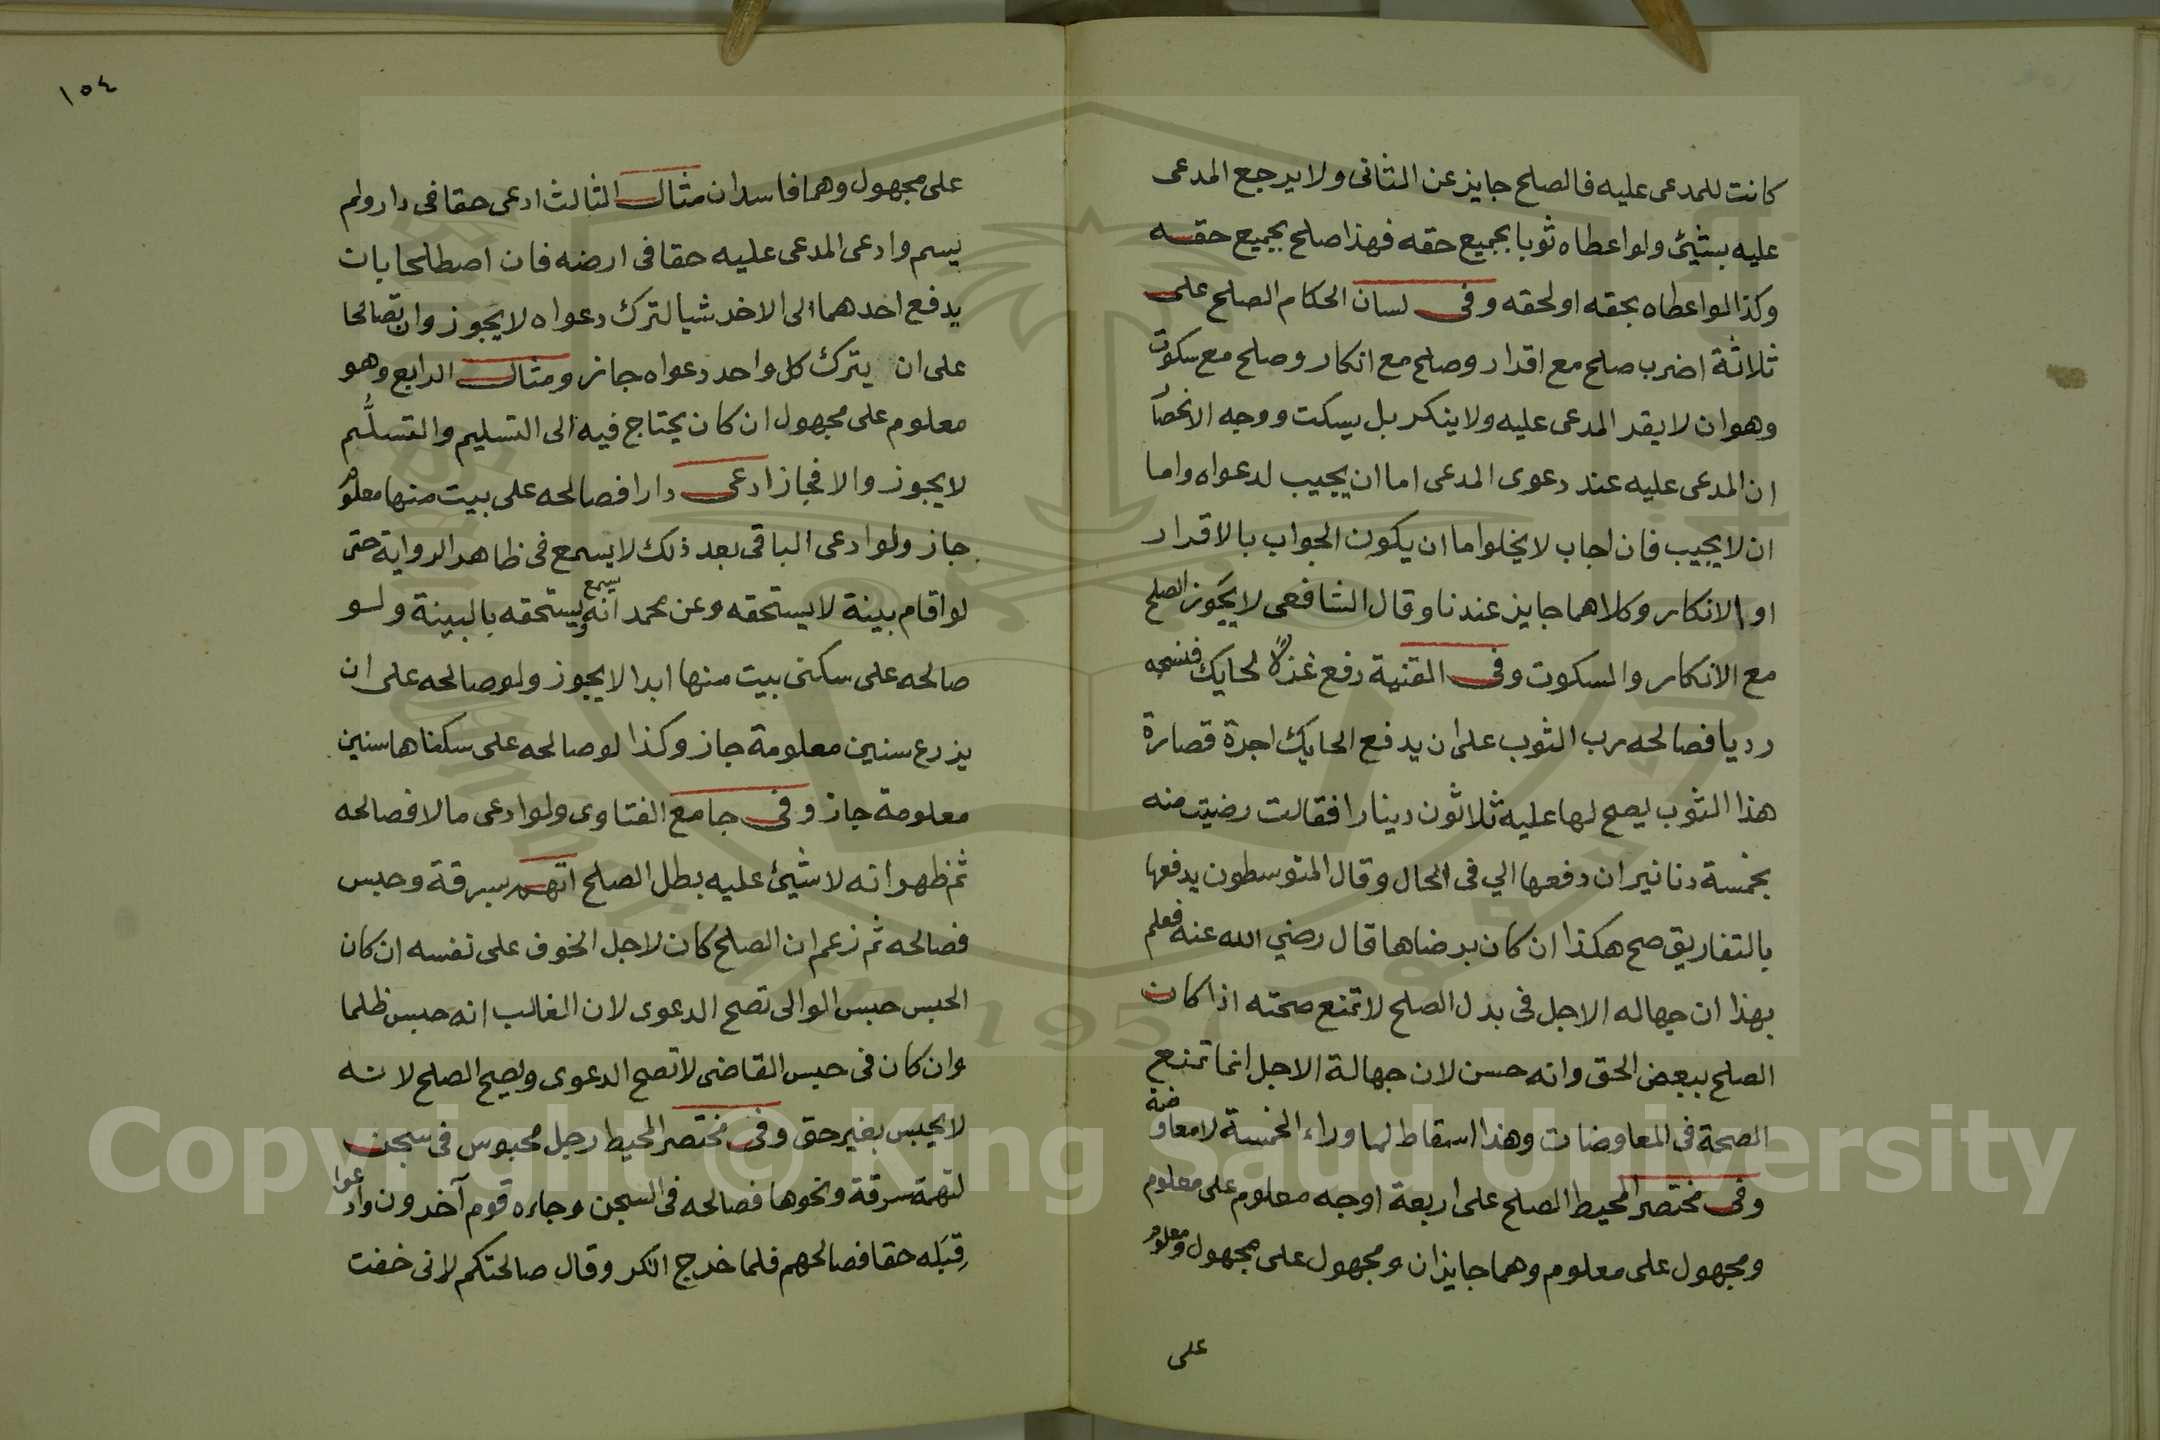 كانت للمدعى عليه فالصلح جايز عن الثانى ولا يرجع المدعى
عليه بشيئ ولو اعطاه ثوبا بجميع حقه فهذا صلح بجميع حقه
وكذا لو اعطاه بحقه او لحقه وفى لسان الحكام الصلح على
ثلاثة اضرب صلح مع اقرار وصلح مع انكار وصلح مع سكوت
وهو ان لا يقر المدعى عليه ولا ينكر بل يسكت ووجه الانحصا
ان المدعى عليه عند دعوى المدعى اما ان يجيب لدعواه واما
ان لا يجيب فان اجاب لا يخلوا ما ان يكون الجواب بالاقرار
او الانكار وكلاهما جايز عندنا وقال الشافعى لا يجوز الصلح
مع الانكار والسكوت وفى القنية دفع غزلا لحايك فنسجه
رديا فصالحه رب الثوب على ان يدفع الحايك اجرة قصارة
هذا الثوب يصح لها عليه ثلاثون دينارا فقالت رضيت منه
بخمسة دنانير ان دفعها الي فى الحال وقال المتوسطون يدفعها
بالتفاريق صح هكذا ان كان برضاها قال رضي الله عنه فعلم
بهذا ان جهاله الاجل فى بدل الصلح لا تمنع صحته اذا كان
الصلح ببعض الحق وانه حسن لان جهالة الاجل انما تمنع
الصحة فى المعاوضات وهذا اسقاط لما وراء الخمسة لا معاوضة
وفى مختصر المحيط الصلح على اربعة اوجه معلوم على معلوم
ومجهول على معلوم وهما جايزان ومجهول على مجهول ومعلوم
على
١٥٤
على مجهول وهما فاسدان مثال الثالث ادعى حقا فى دار ولم
يسم وادعى المدعى عليه حقا فى ارضه فان اصطلحا بان
يدفع احدهما الى الاخر شيا لترك دعواه لا يجوز وان تصالحا
على ان يترك كل واحد دعواه جاز ومثال الرابع وهو
معلوم على مجهول ان كان يحتاج فيه الى التسليم والتسلُّم
لا يجوز والا فجاز ادعى دارا فصالحه على بيت منها معلوم
جاز ولو ادعى الباقى بعد ذلك لا يسمع فى ظاهر الرواية حتى
لو اقام بينة لا يستحقه وعن محمد انه يسمع ويستحقه بالبينة ولو
صالحه على سكنى بيت منها ابدا لا يجوز ولو صالحه على ان
يزرع سنين معلومة جاز وكذا لو صالحه على سكناها سنين
معلومة جاز وفى جامع الفتاوى ولو ادعى مالا فصالحه
ثم ظهر انه لا شيئ عليه بطل الصلح اتهم بسرقة وحبس
فصالحه ثم زعم ان الصلح كان لاجل الخوف على نفسه ان كان
الحبس حبس الوالى تصح الدعوى لان الغالب انه حبس ظلما
وان كان فى حبس القاضى لا تصح الدعوى ويصح الصلح لانه
لا يحبس بغير حق وفى مختصر المحيط رجل محبوس فى سجن
لتهمة سرقة ونحوها فصالحه فى السجن وجاءه قوم آخرون وادعوا
قِبَله حقا فصالحهم فلما خرج انكر وقال صالحتكم لانى خفت
Copyright © King Saud University
1957